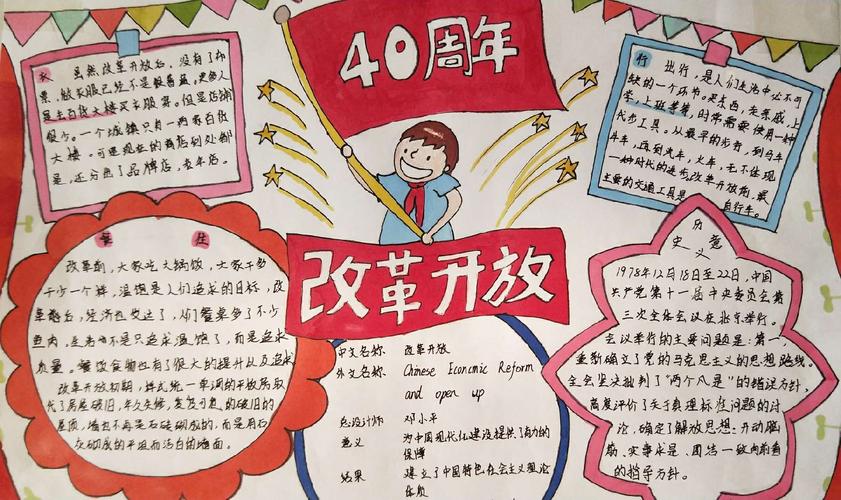 40周年
衣 虽然改革开放后,没有了布
票,做衣服已经不是很普遍。更多人
是去百货大楼买衣服穿。但是店铺
很少。一个城镇只有一两家百货
大楼。可是现在的商店到处都
是,还分出了品牌店,专卖店。
行 出行,是人们生活中必不可
缺的一个环节。买东西,走亲戚,上
学,上班等等,时常需要使用一种
代步工具。从最早的步行,到马车
牛车,再到汽车,火车,无不体现
一种时代的进步。改革开放前,最
主要的交通工具是
自行车。
食 住
改革前,大家吃大锅饭,大家干多
干少一个样,温饱是人们追求的目标,改
革制后,经济也发达了,人们餐桌多了不少
鱼肉,
不是只追求温饱了,而是追求
质量。餐饮食物也有了很大的提升以及追求
改革开放初期,样式统一单调的开放房取
代了房屋破旧,年久失修,
的破旧的
屋顶,墙也不再是石砖砌成的,而是用石
灰砌成的平坦而洁白的墙面。
改革开放
中文名称 改革开放
外文名称 Chinese Economic Reform
and open up
总设计师 邓小平
意义 为中国现代化建设提供了有力的
保障
结果 建立了中国特色社会主义理论
体质
历
史 意
义
1978年12月18日至22日,中国
共产党第十一届中央委员会第
三次全体会议在北京举行。
会议举行的主要问题是:第一,
重新确立了党的马克思主义的思想路线。
全会坚决批判了"两个凡是"的错误方针,
高度评价了关于真理标准问题的讨
论,确定了解放思想、开动脑
筋、实事求是、团结一致向前看
的指导方针。